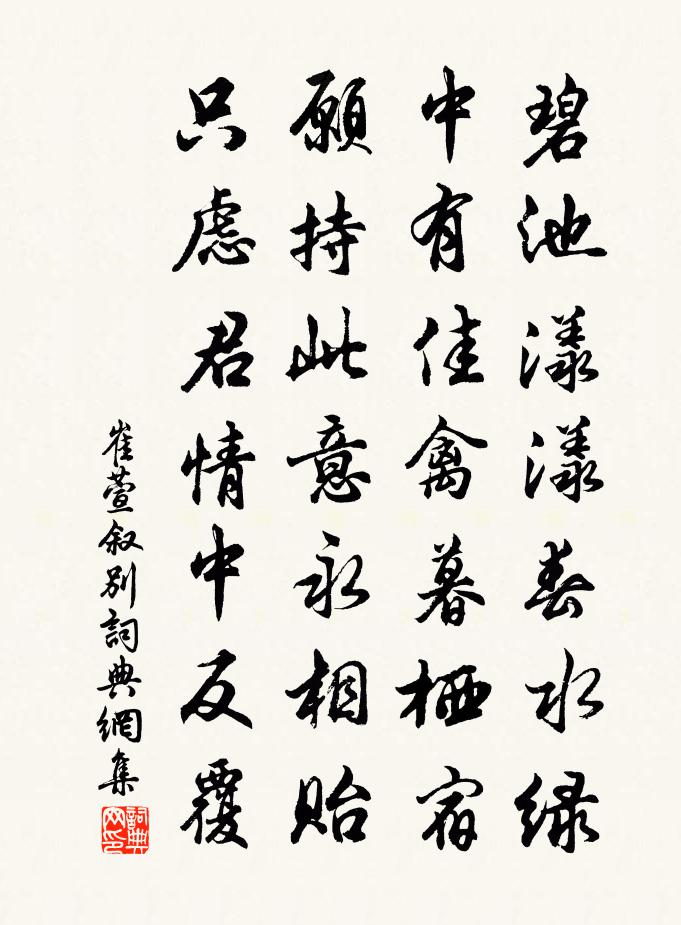 碧池漾漾春水緑
中有佳禽暮栖宿
願持此意永相貽
只慮君情中反覆
崔萱叙別詞典網集
詞典网印